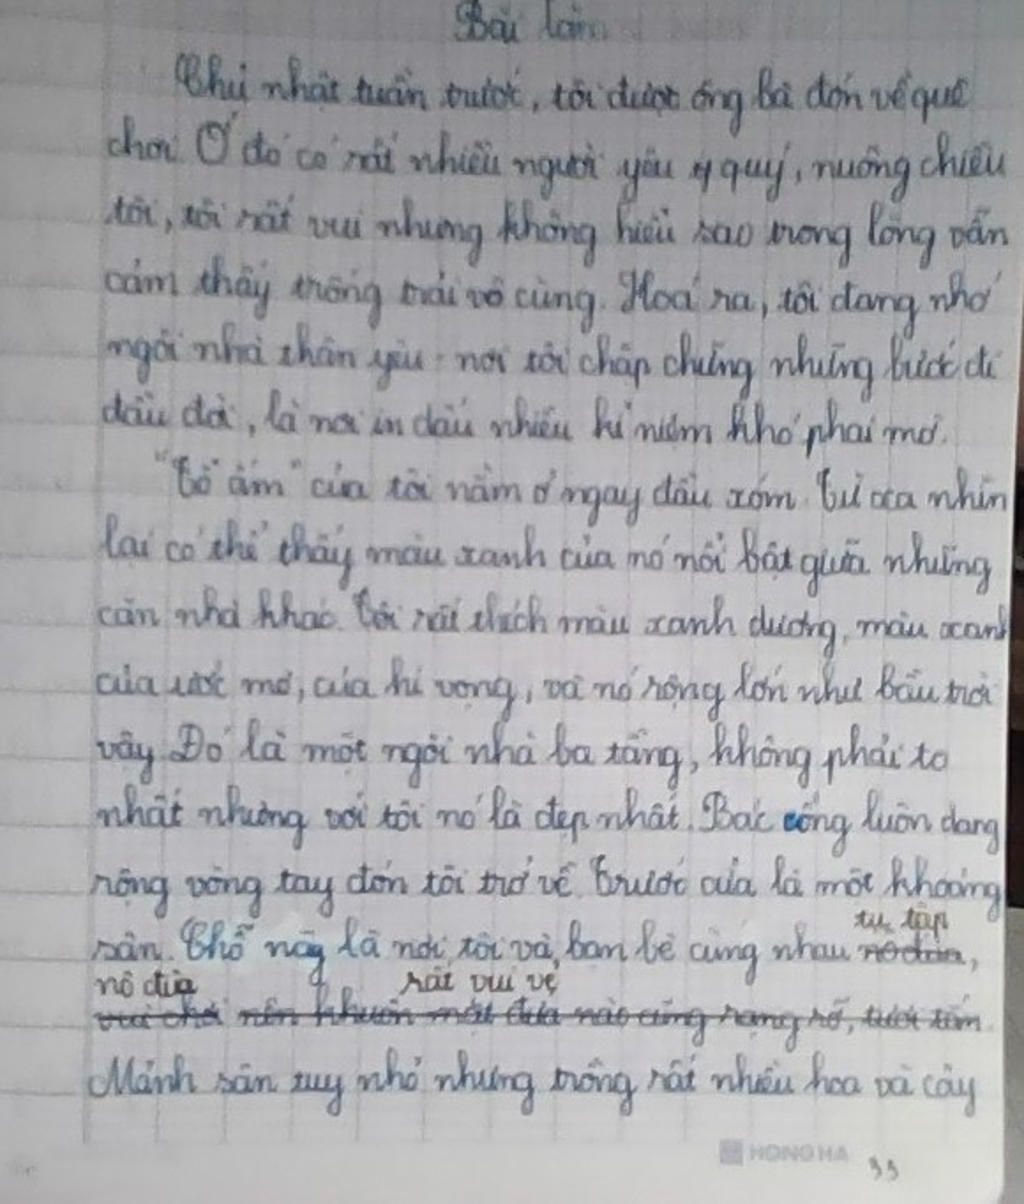 Bài làm
Chủ nhật tuần trước, tôi được ông bà đón về quê
chơi. Ở đó có rất nhiều người yêu quý, nuông chiều
tôi, tôi rất vui nhưng không hiểu sao trong lòng vẫn
cảm thấy trống trải vô cùng. Hoá ra, tôi đang nhớ
ngôi nhà thân yêu - nơi tôi chập chững những bước đi
đầu đời, là nơi in dấu nhiều kỉ niệm khó phai mờ.
"Tổ ấm" của tôi nằm ở ngay đầu xóm. Từ xa nhìn
lại có thể thấy màu xanh của nó nổi bật giữa những
căn nhà khác. Tôi rất thích màu xanh dương, màu xanh
của ước mơ, của hi vọng, và nó rộng lớn như bầu trời
vậy. Đó là một ngôi nhà ba tầng, không phải to
nhất nhưng với tôi nó là đẹp nhất. Bác cổng luôn dang
rộng vòng tay đón tôi trở về. Trước cửa là một khoảng
tụ tập
sân. Chỗ này là nơi tôi và bạn bè cùng nhau nô đùa,
nô đùa rất vui vẻ
vui chơi nên khuôn mặt đứa nào cũng rạng rỡ, tươi tắn.
Mảnh sân tuy nhỏ nhưng trồng rất nhiều hoa và cây
HONG HA 33